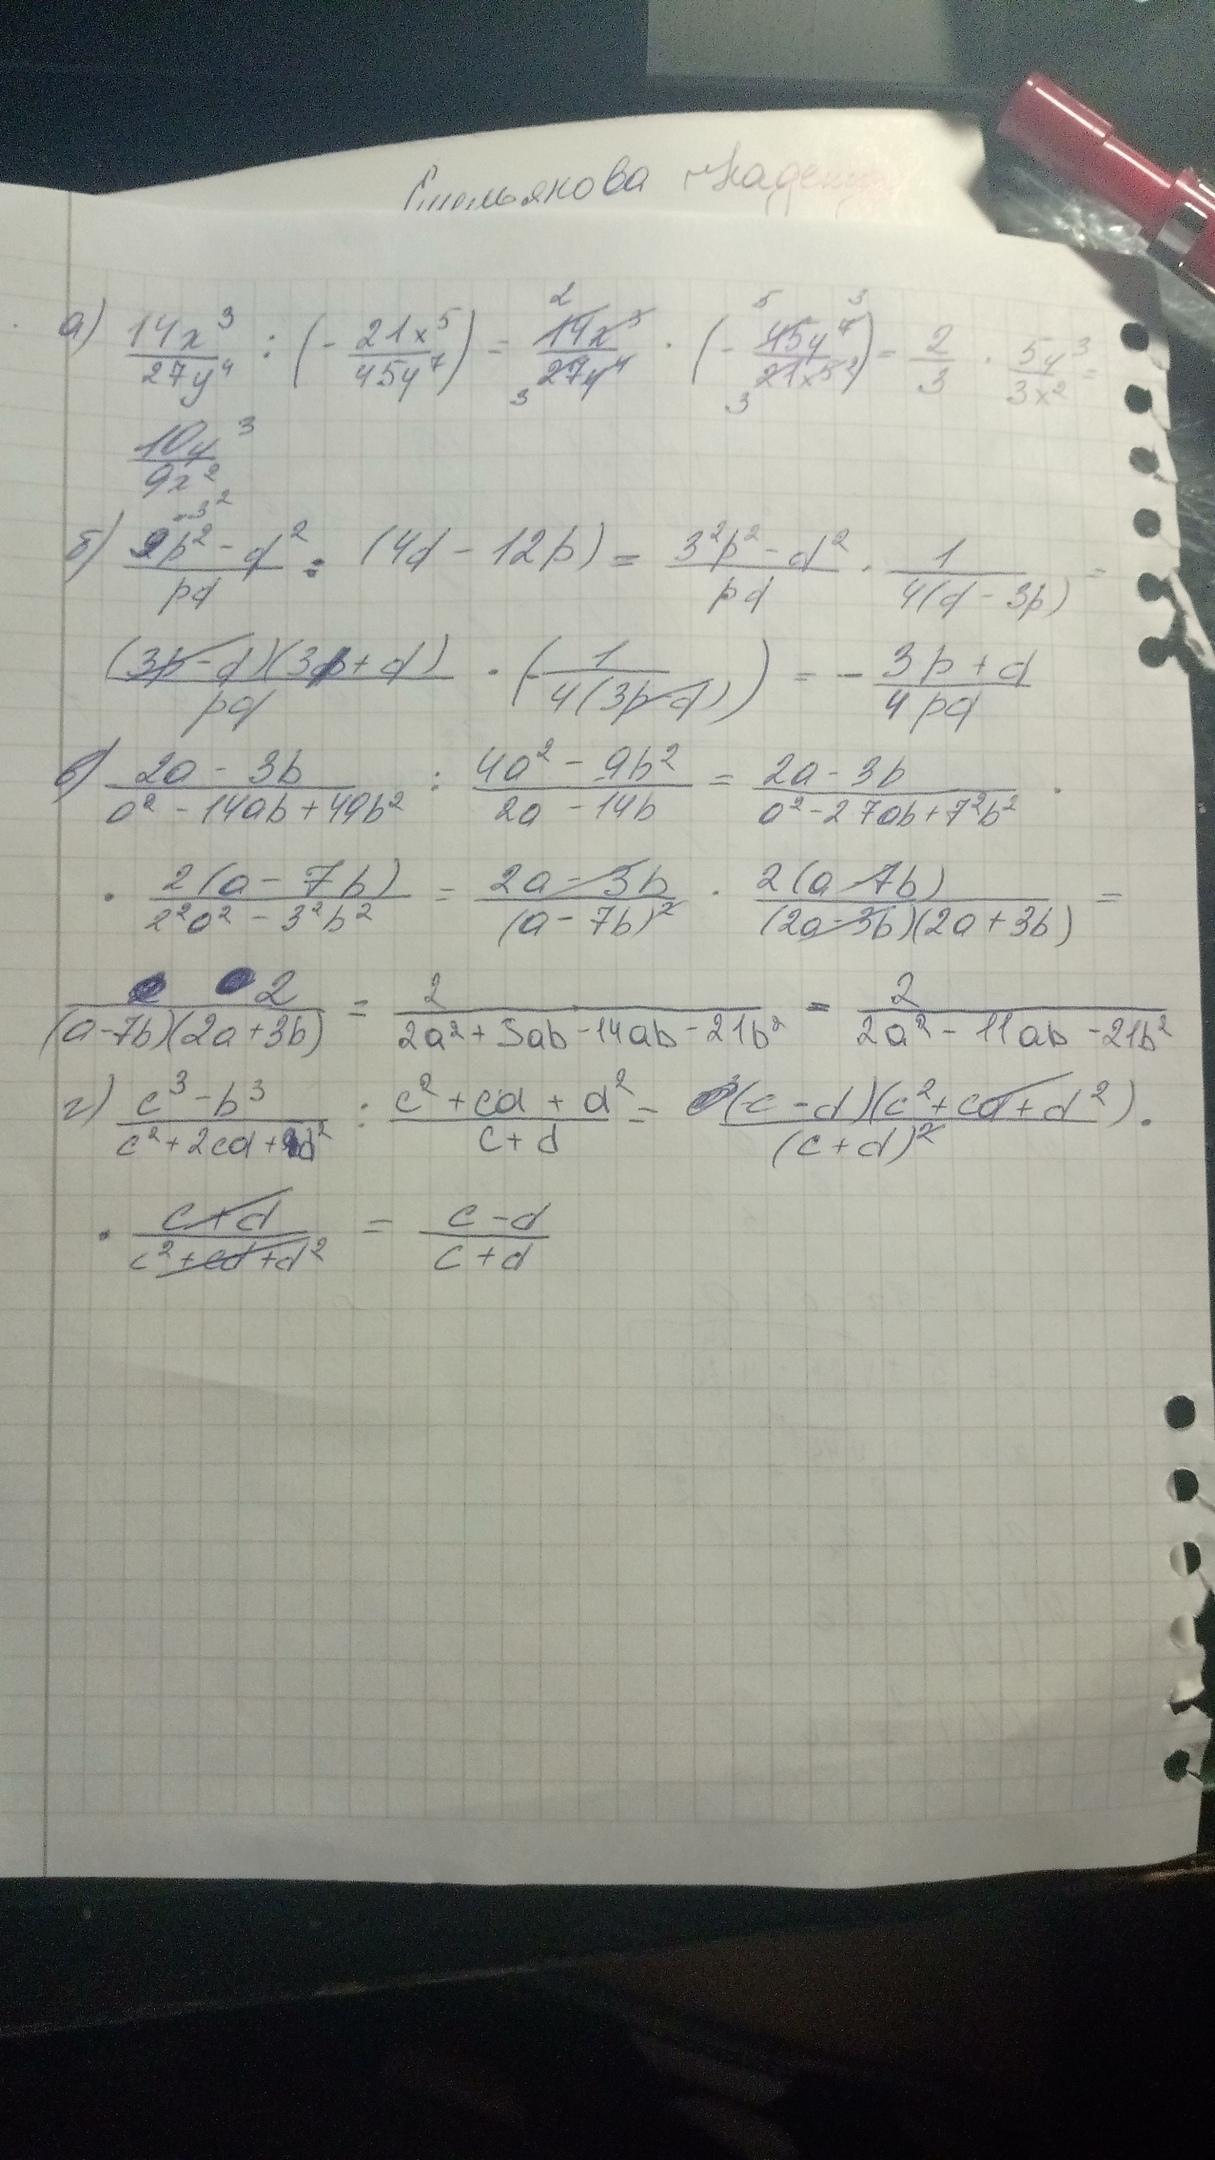 а) 14x³/27y⁴ : (- 21x⁵/45y⁷) = 14x³/27y⁴ · (- 45y⁷/21x⁵) = 2/3 · 5y³/3x² =
10y³/9x²
б) (9p² - d²)/pd : (4d - 12p) = (3²p² - d²)/pd · 1/4(d - 3p) =
(3p - d)(3p + d)/pd · (- 1/4(3p - d)) = - (3p + d)/4pd
в) (2a - 3b)/(a² - 14ab + 49b²) : (4a² - 9b²)/(2a - 14b) = (2a - 3b)/(a² - 2 7ab + 7²b²) ·
· 2(a - 7b)/(2²a² - 3²b²) = (2a - 3b)/(a - 7b)² · 2(a - 7b)/(2a - 3b)(2a + 3b) =
2/(a - 7b)(2a + 3b) = 2/(2a² + 3ab - 14ab - 21b²) = 2/(2a² - 11ab - 21b²)
г) (c³ - b³)/(c² + 2cd + d²) : (c² + cd + d²)/(c + d) = (c - d)(c² + cd + d²)/(c + d)² ·
· (c + d)/(c² + cd + d²) = (c - d)/(c + d)